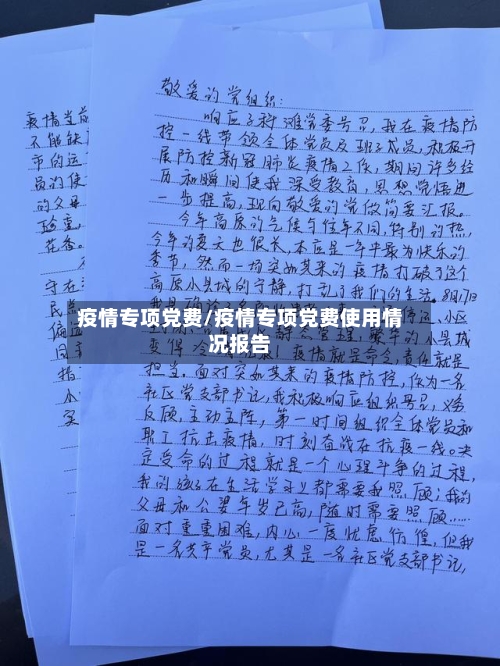 敬爱的党组织:
响应了对滩党委号召,我在疫情防
控一线带领全体党员及班子成员,积极开
展防控新冠肺炎疫情工作,期间许多经
历和瞬间使我深受教育,思想觉悟进
一步提高,现向敬爱的党做简要汇报。
今年高原的气候与往年不同,特别的热,
今年的夏天也很长,本应是一年中最为快乐的
季节,然而一场突如其来的疫情打破了这个
高原小县城的宁静,打乱了我们的生活。8月17日
小区
疫情专项党费/疫情专项党费使用情
况报告
静态管理,繁华的小县城
变得冷 疫情就是命令,责任就是
担当。面对突如其来的疫情防控,作为一名
社区党支部书记,我积极响应组织号召,义务
反顾,主动立阵,第一时间组织全体党员和
职工抗击疫情,时刻奋战在抗疫一线。决
定受命的过程就是一个心理斗争的过程,
我的孩子在生活学习上都需要我照顾;我的
父母和公婆年岁已高,随时需要照顾……
面对重重困难,内心一度忧虑彷徨,但我
是一名共产党员,尤其是一名社区党支部书记,
疫情当前
不能缺
市的运
员的使
的父母
珍重,
花香。
守在
民点
偏
同
情
小
实